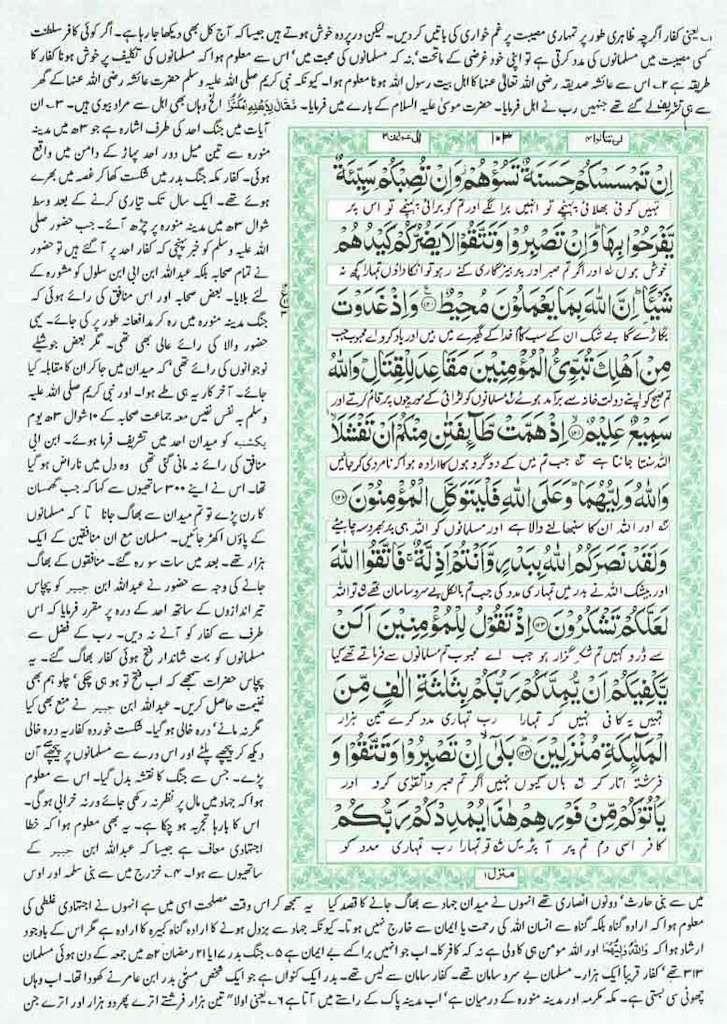 ۱۔ یعنی کفار اگرچہ ظاہری طور پر تمہاری مصیبت پر غم خواری کی باتیں کر دیں۔ لیکن درپردہ خوش ہوتے ہیں جیسا کہ آج کل بھی دیکھا جا رہا ہے۔ اگر کوئی کافر سلطنت
کسی مصیبت میں مسلمانوں کی مدد کرتی ہے تو اپنی خود غرضی کے ماتحت' نہ کہ مسلمانوں کی محبت میں' اس سے معلوم ہوا کہ مسلمانوں کی تکلیف پر خوش ہونا کفار کا
طریقہ ہے ۲۔ اس سے عائشہ صدیقہ رضی اللہ تعالیٰ عنہا کا اہل بیت رسول اللہ ہونا معلوم ہوا۔ کیونکہ نبی کریم صلی اللہ علیہ وسلم حضرت عائشہ رضی اللہ عنہا کے گھر
سے ہی تشریف لے گئے تھے جنہیں رب نے اہل فرمایا۔ حضرت موسیٰ علیہ السلام کے بارے میں فرمایا۔ فَقَالَ لِاَهْلِهِ امْكُثُوْا الخ وہاں بھی اہل سے مراد بیوی ہیں۔ ۳۔ ان
لن تنالوا ۴
۱۰۳
اٰل عمرٰن ۳
اِنْ تَمْسَسْكُمْ حَسَنَةٌ تَسُؤْهُمْ وَاِنْ تُصِبْكُمْ سَيِّئَةٌ
تمہیں کوئی بھلائی پہنچے تو انہیں برا لگے اور تم کو برائی پہنچے تو اس پر
يَّفْرَحُوْا بِهَا وَاِنْ تَصْبِرُوْا وَتَتَّقُوْا لَا يَضُرُّكُمْ كَيْدُهُمْ
خوش ہوں اور اگر تم صبر اور پرہیزگاری کئے رہو تو ان کا داؤں تمہارا کچھ نہ
شَيْـًٔا اِنَّ اللّٰهَ بِمَا يَعْمَلُوْنَ مُحِيْطٌ ۱۲۰ وَاِذْ غَدَوْتَ
بگاڑے گا بے شک ان کے سب کام خدا کے گھیرے میں ہیں اور یاد کرو اے محبوب جب
مِنْ اَهْلِكَ تُبَوِّئُ الْمُؤْمِنِيْنَ مَقَاعِدَ لِلْقِتَالِ وَاللّٰهُ
تم صبح کو اپنے دولت خانہ سے برآمد ہوئے مسلمانوں کو لڑائی کے مورچوں پر قائم کرتے اور
سَمِيْعٌ عَلِيْمٌ ۱۲۱ اِذْ هَمَّتْ طَّآئِفَتٰنِ مِنْكُمْ اَنْ تَفْشَلَا
اللہ سنتا جانتا ہے جب تم میں کے دو گروہوں کا ارادہ ہوا کہ نامردی کر جائیں
وَاللّٰهُ وَلِيُّهُمَا وَعَلَى اللّٰهِ فَلْيَتَوَكَّلِ الْمُؤْمِنُوْنَ ۱۲۲
اور اللہ ان کا سنبھالنے والا ہے اور مسلمانوں کو اللہ ہی پر بھروسہ چاہیئے
وَلَقَدْ نَصَرَكُمُ اللّٰهُ بِبَدْرٍ وَّاَنْتُمْ اَذِلَّةٌ فَاتَّقُوا اللّٰهَ
اور بیشک اللہ نے بدر میں تمہاری مدد کی جب تم بالکل بے سر و سامان تھے تو اللہ
لَعَلَّكُمْ تَشْكُرُوْنَ ۱۲۳ اِذْ تَقُوْلُ لِلْمُؤْمِنِيْنَ اَلَنْ
سے ڈرو کہیں تم شکر گزار ہو جب اے محبوب تم مسلمانوں سے فرماتے تھے کیا
يَّكْفِيَكُمْ اَنْ يُّمِدَّكُمْ رَبُّكُمْ بِثَلٰثَةِ اٰلٰفٍ مِّنَ
تمہیں یہ کافی نہیں کہ تمہارا رب تمہاری مدد کرے تین ہزار
الْمَلٰٓئِكَةِ مُنْزَلِيْنَ ۱۲۴ بَلٰٓى اِنْ تَصْبِرُوْا وَتَتَّقُوْا وَ
فرشتہ اتار کر ہاں کیوں نہیں اگر تم صبر و تقوٰی کرو اور
يَاْتُوْكُمْ مِّنْ فَوْرِهِمْ هٰذَا يُمْدِدْكُمْ رَبُّكُمْ
کافر اسی دم تم پر آ پڑیں تو تمہارا رب تمہاری مدد کو
منزل ۱
آیات میں جنگ احد کی طرف اشارہ ہے جو ۳ھ میں مدینہ
منورہ سے تین میل دور احد پہاڑ کے دامن میں واقع
ہوئی۔ کفار مکہ جنگ بدر میں شکست کھا کر غصہ میں بھرے
ہوئے تھے۔ ایک سال تک تیاری کرنے کے بعد وسط
شوال ۳ھ میں مدینہ منورہ پر چڑھ آئے۔ جب حضور صلی
اللہ علیہ وسلم کو خبر پہنچی کہ کفار احد پر آ گئے ہیں تو حضور
نے تمام صحابہ بلکہ عبداللہ ابن ابی ابن سلول کو مشورہ کے
لئے بلایا۔ بعض صحابہ اور اس منافق کی رائے ہوئی کہ
جنگ مدینہ منورہ میں رہ کر مدافعانہ طور پر کی جائے۔ یہی
حضور والا کی رائے عالی بھی تھی۔ مگر بعض جوشیلے
نوجوانوں کی رائے تھی' کہ میدان میں جا کر ان کا مقابلہ کیا
جائے۔ آخر کار یہ ہی طے ہوا۔ اور نبی کریم صلی اللہ علیہ
وسلم بہ نفس نفیس معہ جماعت صحابہ کے ۱۰ شوال ۳ھ یوم
یکشنبہ کو میدان احد میں تشریف فرما ہوئے۔ ابن ابی
منافق کی رائے نہ مانی گئی تھی وہ دل میں ناراض ہو گیا
تھا۔ اس نے اپنے ۳۰۰ ساتھیوں سے کہا کہ جب گھمسان
کا رن پڑے تو تم میدان سے بھاگ جانا تا کہ مسلمانوں
کے پاؤں اکھڑ جائیں۔ مسلمان مع ان منافقین کے ایک
ہزار تھے۔ بعد میں سات سو رہ گئے۔ منافقوں کے بھاگ
جانے کی وجہ سے حضور نے عبداللہ ابن جبیر کو پچاس
تیر اندازوں کے ساتھ احد کے درہ پر مقرر فرمایا کہ اس
طرف سے کفار کو آنے نہ دیں۔ رب کے فضل سے
مسلمانوں کو بہت شاندار فتح ہوئی کفار بھاگ گئے۔ یہ
پچاس حضرات سمجھے کہ اب فتح تو ہو ہی چکی' چلو ہم بھی
غنیمت حاصل کریں۔ عبداللہ ابن جبیر نے منع بھی کیا
مگر نہ مانے' درہ خالی ہو گیا۔ شکست خوردہ کفار یہ درہ خالی
دیکھ کر پیچھے پلٹے اور اس درے سے مسلمانوں پر پیچھے آن
پڑے۔ جس سے جنگ کا نقشہ بدل گیا۔ اس سے معلوم
ہوا کہ جہاد میں مال پر نظر نہ رکھی جائے ورنہ خرابی ہو گی۔
اس کا بارہا تجربہ ہو چکا ہے۔ یہ بھی معلوم ہوا کہ خطا
اجتہادی معاف ہے جیسا کہ عبداللہ ابن جبیر کے
ساتھیوں سے ہوا۔ ۴۔ خزرج میں سے بنی سلمہ اور اوس
میں سے بنی حارث' دونوں انصاری تھے انہوں نے میدان جہاد سے بھاگ جانے کا قصد کیا یہ سمجھ کر اس وقت مصلحت اسی میں ہے انہوں نے اجتہادی غلطی کی
معلوم ہوا کہ ارادہ گناہ بلکہ گناہ سے انسان اللہ کی رحمت یا ایمان سے خارج نہیں ہوتا۔ کیونکہ جہاد سے بزدل ہونے کا ارادہ گناہ کبیرہ کا ارادہ ہے مگر اس کے باوجود
ارشاد ہوا کہ وَاللّٰهُ وَلِيُّهُمَا اور اللہ مومن ہی کا ولی ہے نہ کہ کافر کا۔ اب جو انہیں برا کہے بے ایمان ہے ۵۔ جنگ بدر ۱۷ یا ۲۱ رمضان ۲ھ میں جمعہ کے دن ہوئی مسلمان
۳۱۳ تھے' کفار قریباً ایک ہزار۔ مسلمان بے سرو سامان تھے۔ کفار سامان سے لیس تھے۔ بدر ایک کنواں ہے جو ایک شخص مسمّٰی بدر ابن عامر نے کھودا تھا۔ اب وہاں
چھوٹی سی بستی ہے۔ مکہ مکرمہ اور مدینہ منورہ کے درمیان ہے' اب مدینہ پاک کے راستے میں آتا ہے ۶۔ یعنی اولاً" تین ہزار فرشتے اترے پھر دو ہزار اور اترے جن